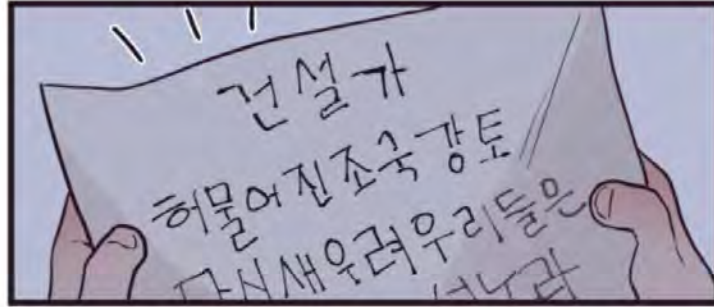 건설가
허물어진조국강토
다시새우려우리들은